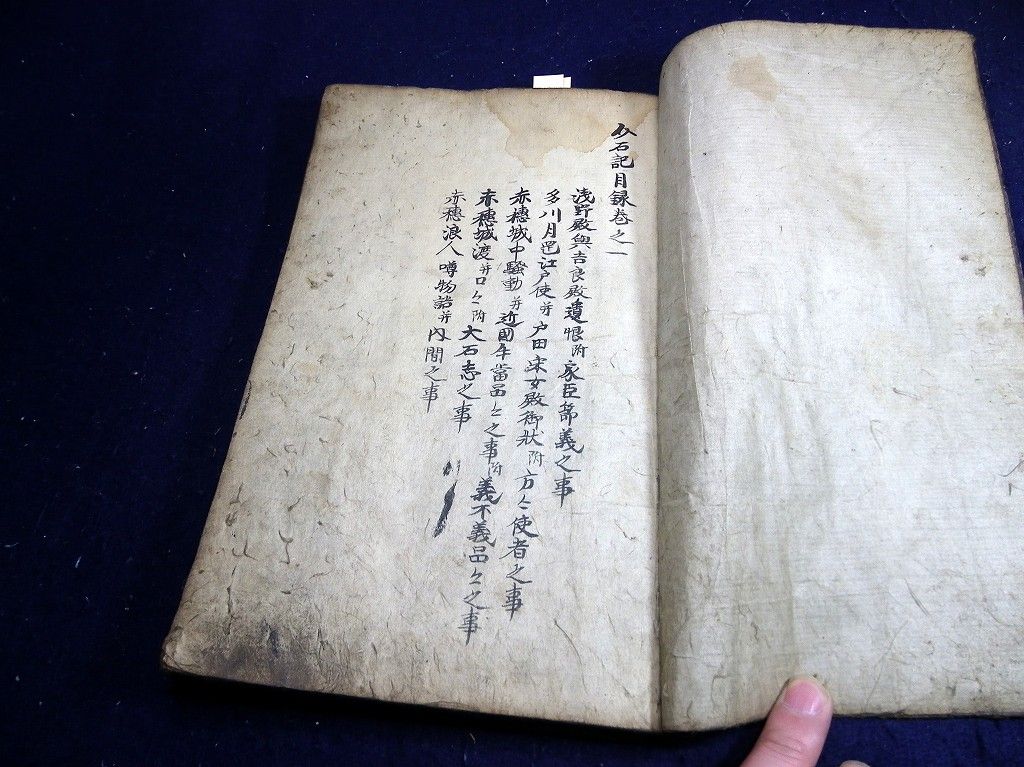 介石記目録巻之一
浅野殿與吉良殿遺恨附家臣節義之事
多川月岡江戸使并戸田采女殿御狀附方々使者之事
赤穗城中騒動并近國手當品々之事附義不義品々之事
赤穗城渡并口々附大石志之事
赤穗浪人噂物語并内間之事